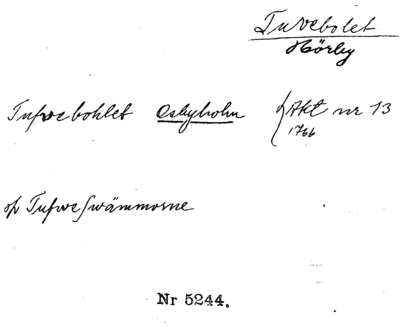 Tuvebolet
Hörby
Tufvebohlet Osbyholm { Akt nr 13
1766
op Tufve Swämmorne
Nr 5244.